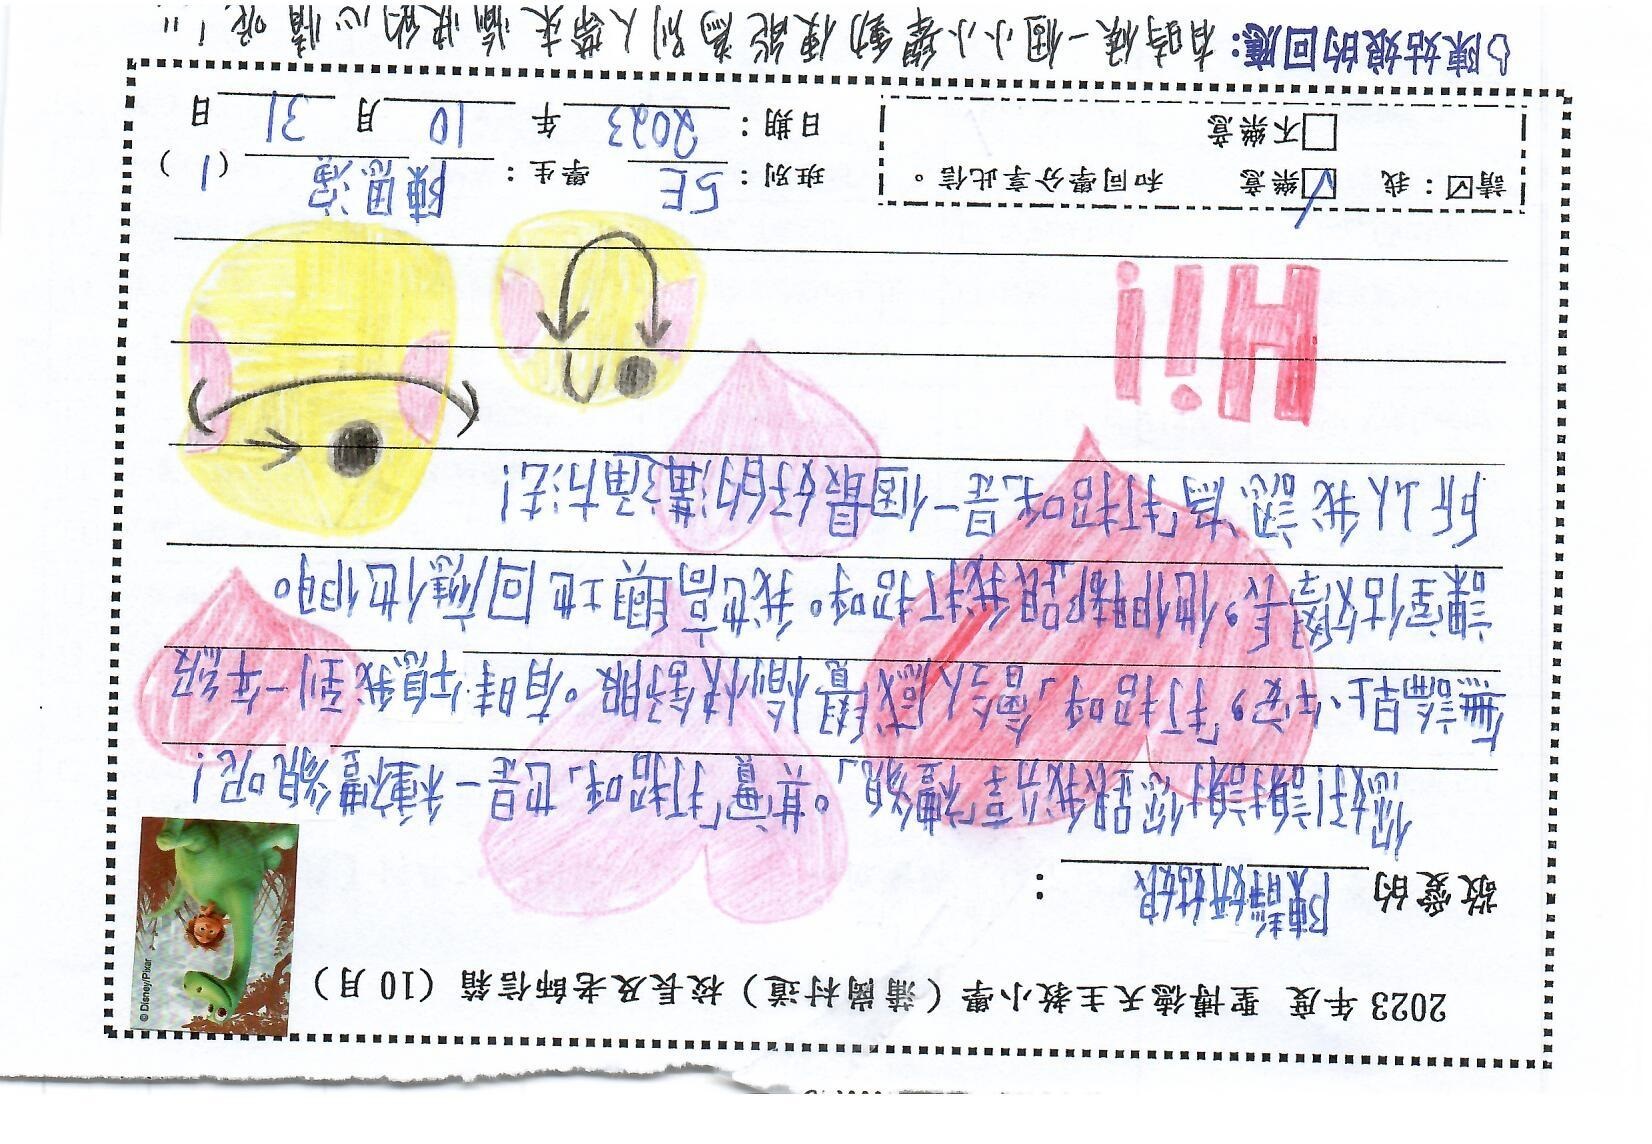 2023 年度 聖博德天主教小學（蒲崗村道）校長及老師信箱（10 月）
© Disney/Pixar
敬愛的 陳 妍姑娘：
您好!謝謝你跟我分享「禮貌」。其實「打招呼」也是一種禮貌呢!
無論早上、午安，「打招呼」會令人感覺愉快舒服。有時午息我到一年級
課室做學長，他們都跟我打招呼。我也高興地回應他們。
所以我認為「打招呼」是一個最好的滿 方法!
Hi!
請☑：我 ☑樂意 和同學分享此信。
□不樂意
班別：5E 學生：陳思 （1）
日期：2023 年 10 月 31 日
陳姑娘的回應：有時候一個小小舉動便能為別人帶來愉快的心情呢!!!